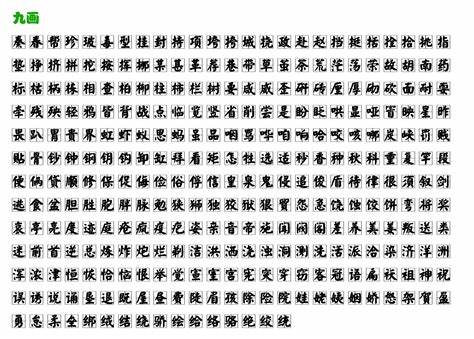 九画
奏春帮珍玻毒型挂封持项垮挎城挠政赴赵挡挺括拴拾挑指
垫挣挤拼挖按挥挪某甚革荐巷带草茧茶荒茫荡荣故胡南药
标枯柄栋相查柏柳柱柿栏树要咸威歪研砖厘厚砌砍面耐耍
牵残殃轻鸦皆背战点临览竖省削尝是盼眨哄显哑冒映星昨
畏趴胃贵界虹虾蚁思蚂虽品咽骂哗咱响哈咬咳哪炭峡罚贱
贴骨钞钟钢钥钩卸缸拜看矩怎牲选适秒香种秋科重复竿段
便俩贷顺修保促侮俭俗俘信皇泉鬼侵追俊盾待律很须叙剑
逃食盆胆胜胞胖脉勉狭狮独狡狱狠贸怨急饶蚀饺饼弯将奖
哀亭亮度迹庭疮疯疫疤姿亲音帝施闻阀阁差养美姜叛送类
迷前首逆总炼炸炮烂剃洁洪洒浇浊洞测洗活派洽染济洋洲
浑浓津恒恢恰恼恨举觉宣室宫宪突穿窃客冠语扁袄祖神祝
误诱说诵垦退既屋昼费陡眉孩除险院娃姥姨姻娇怒架贺盈
勇怠柔垒绑绒结绕骄绘给络骆绝绞统